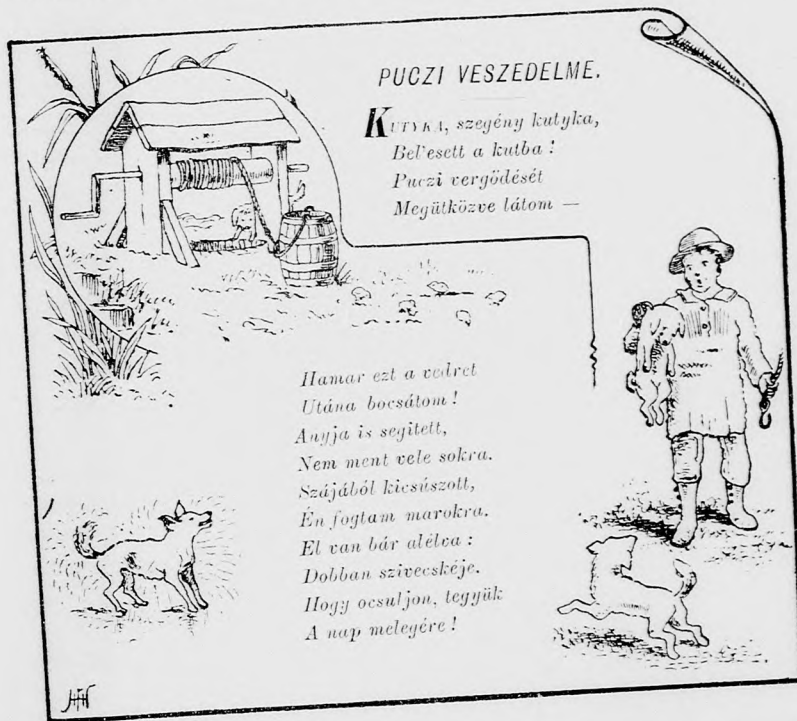 PUCZI VESZEDELME.
KUTYKA, szegény kutyka,
Bel'esett a kutba!
Puczi vergődését
Megütközve látom —
Hamar ezt a vedret
Utána bocsátom!
Anyja is segitett,
Nem ment vele sokra.
Szájából kicsúszott,
Én fogtam marokra.
El van bár alélva:
Dobban szivecskéje.
Hogy ocsuljon, tegyük
A nap melegére!